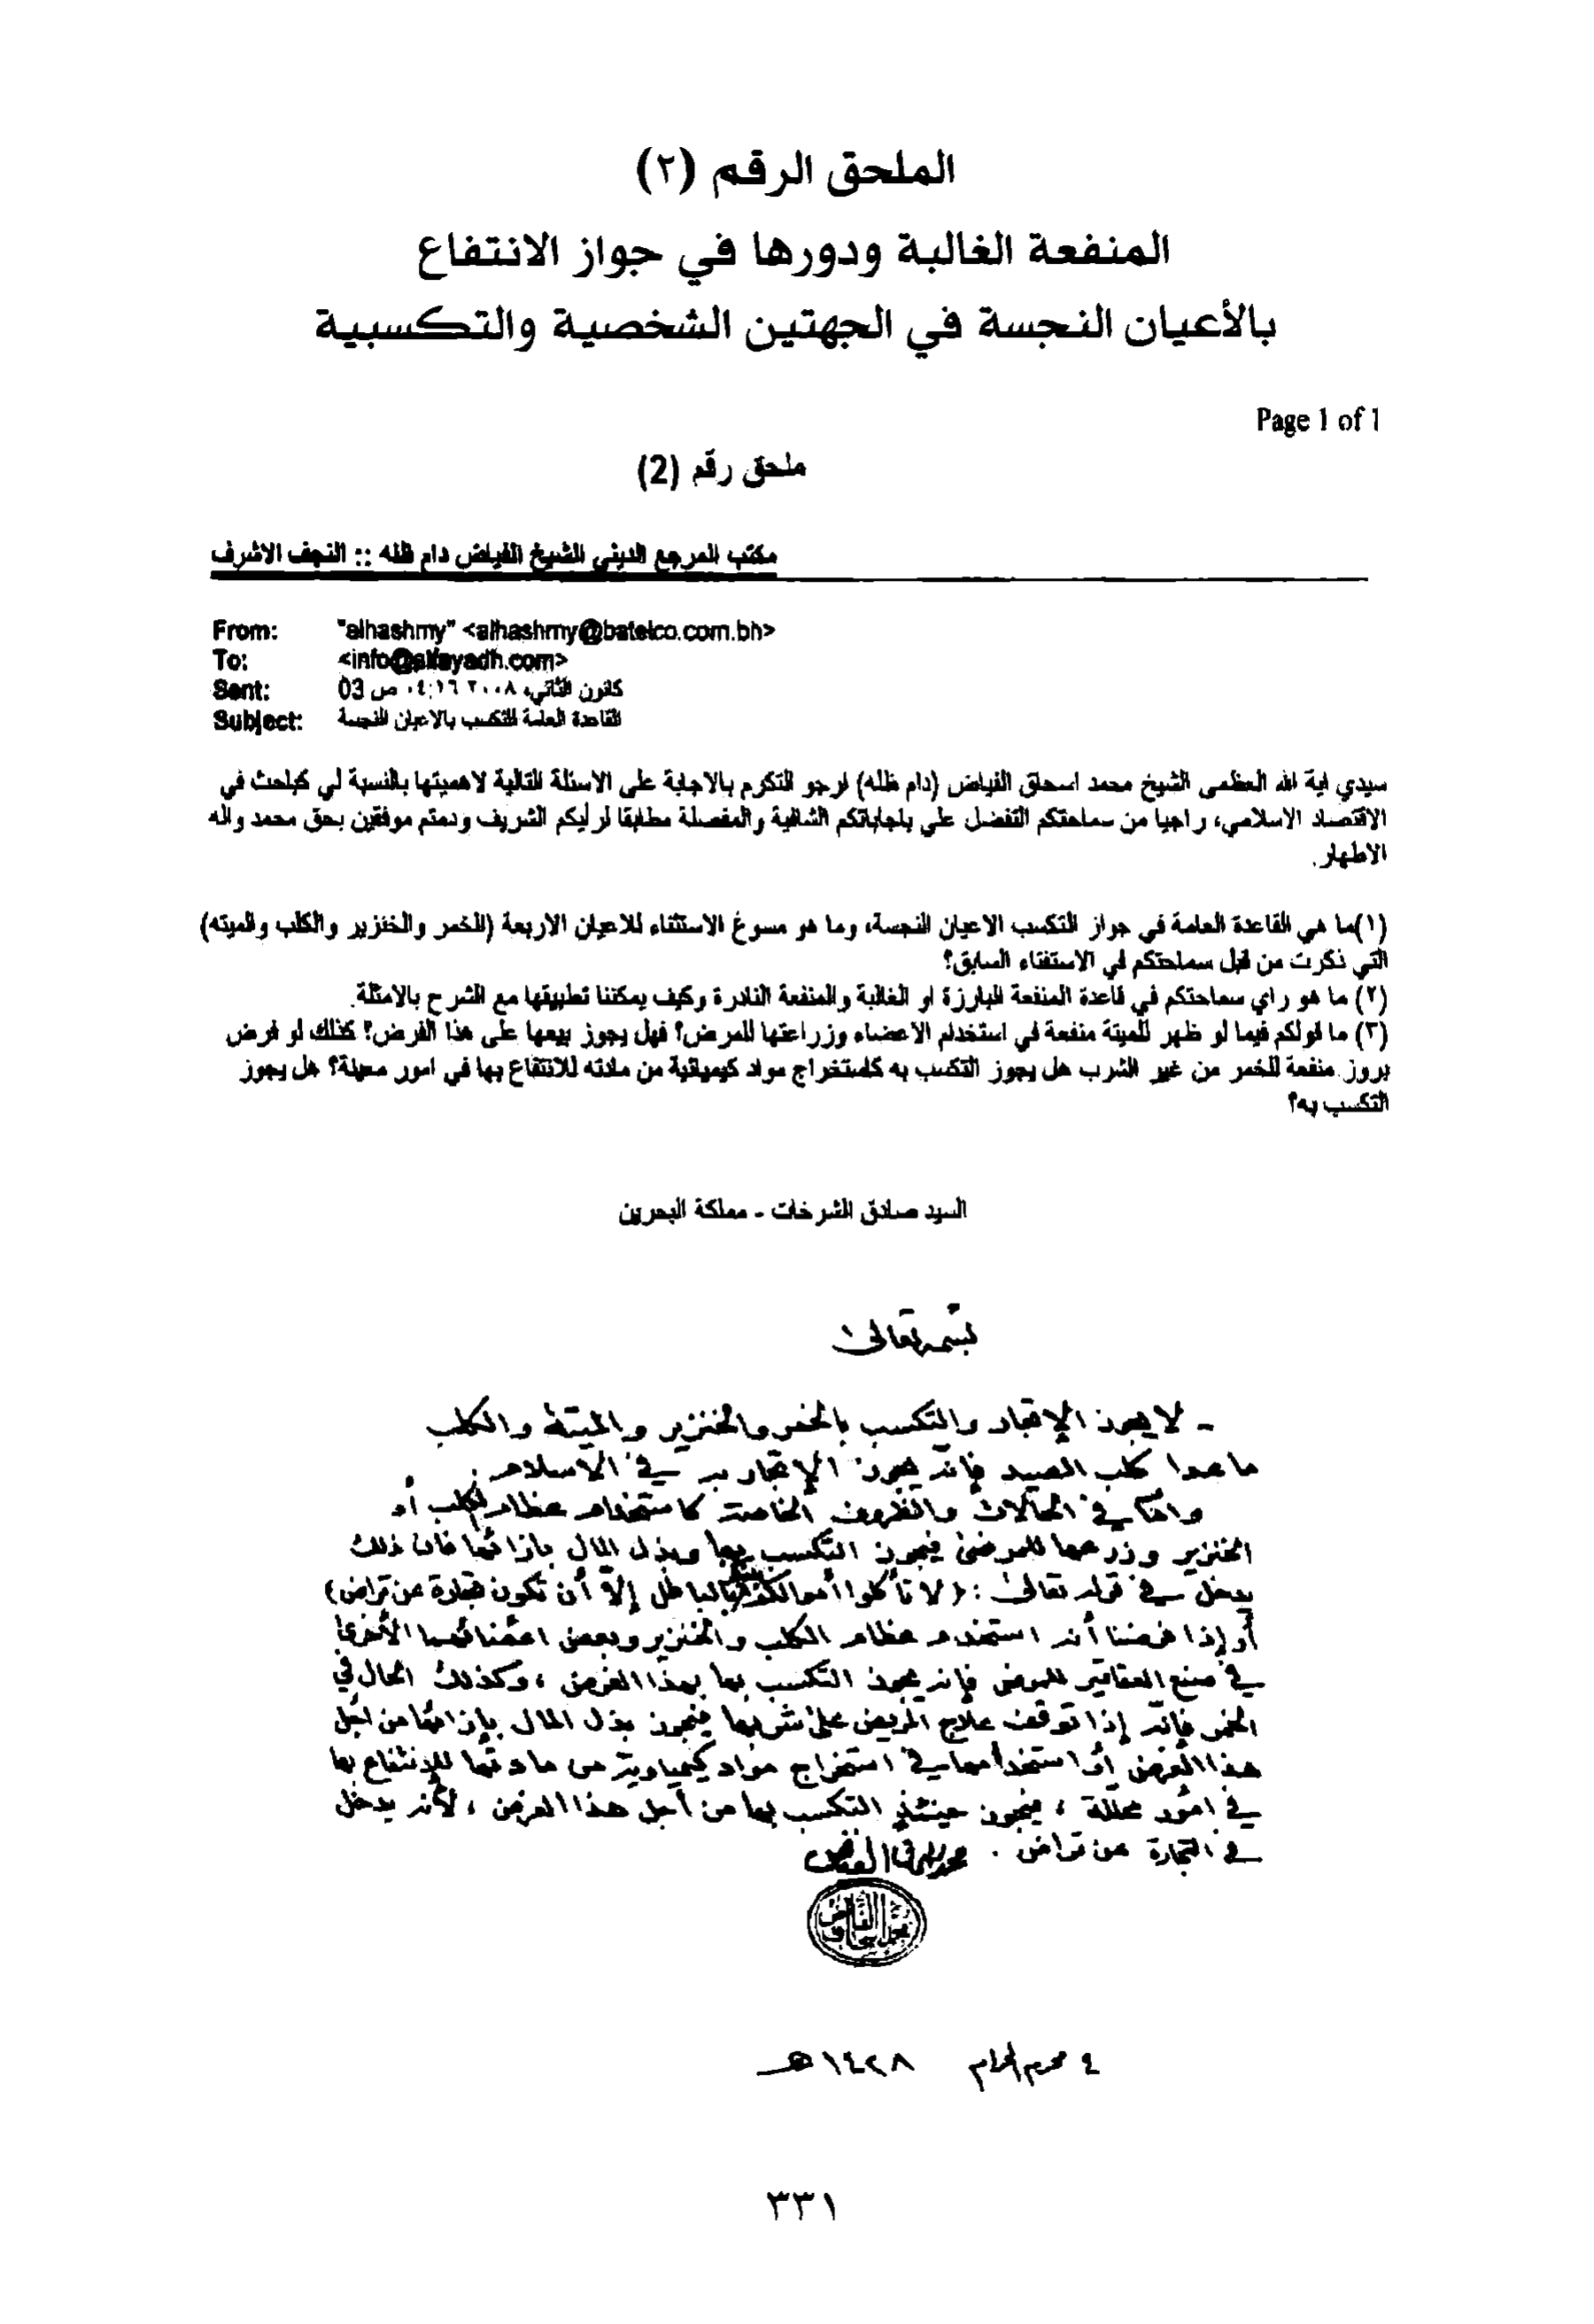 الملحق الرقم (٢)
المنفعة الغالبة ودورها في جواز الانتفاع
بالأعيان النجسة في الجهتين الشخصية والتكسبية
Page 1 of 1
ملحق رقم (2)
مكتب المرجع الديني الشيخ الفياض دام ظله :: النجف الاشرف
From: "alhashmy" <alhashmy@batelco.com.bh>
To: <info@alfayadh.com>
Sent: 03 كانون الثاني، ٢٠٠٨ ٠٤:١٦ ص
Subject: القاعدة العامة للتكسب بالاعيان النجسة
سيدي اية الله العظمى الشيخ محمد اسحاق الفياض (دام ظله) ارجو التكرم بالاجابة على الاسئلة التالية لاهميتها بالنسبة لي كباحث في
الاقتصاد الاسلامي، راجيا من سماحتكم التفضل علي باجاباتكم الشافية والمفصلة مطابقا لرأيكم الشريف ودمتم موفقين بحق محمد واله
الاطهار.
(١)ما هي القاعدة العامة في جواز التكسب الاعيان النجسة، وما هو مسوغ الاستثناء للاعيان الاربعة (الخمر والخنزير والكلب والميته)
التي ذكرت من قبل سماحتكم في الاستفتاء السابق؟
(٢) ما هو راي سماحتكم في قاعدة المنفعة البارزة او الغالبة والمنفعة النادرة وكيف يمكننا تطبيقها مع الشرح بالامثلة.
(٣) ما قولكم فيما لو ظهر للميتة منفعة في استخدام الاعضاء وزراعتها للمرض؟ فهل يجوز بيعها على هذا الفرض؟ كذلك لو فرض
بروز منفعة للخمر من غير الشرب هل يجوز التكسب به كاستخراج مواد كيميائية من مادته للانتفاع بها في امور محللة؟ هل يجوز
التكسب به؟
السيد صادق الشرخات - مملكة البحرين
بسمه تعالى
- لا يجوز الإتجار والتكسب بالخمر والخنزير والميتة والكلب
ما عدا كلب الصيد فإنه يجوز الإتجار به في الاسلام.
وامّا في الحالات والظروف الخاصة كاستخدام عظام الكلب أو
الخنزير وزرعها للمرضى فيجوز التكسب بها وبذل المال بازائها فان ذلك
يدخل في قوله تعالى: (لا تأكلوا أموالكم بينكم بالباطل إلاّ أن تكون تجارة عن تراض)
أو إذا فرضنا أنه استخدام عظام الكلب والخنزير وبعض اعضائهما الأخرى
في صنع العقاقير للمرض فإنه يجوز التكسب بها بهذا الغرض، وكذلك الحال في
الخمر فإنّه إذا توقف علاج المريض على شربها فيجوز بذل المال بإزائها من أجل
هذا الغرض أو استخدامها في استخراج مواد كيمياوية من مادتها للإنتفاع بها
في امور محللة، فيجوز حينئذٍ التكسب بها من أجل هذا الغرض، لأنه يدخل
في التجارة عن تراض. محمد اسحاق الفياض
محمد اسحاق الفياض
٤ محرم الحرام ١٤٢٨هـ
٣٣١